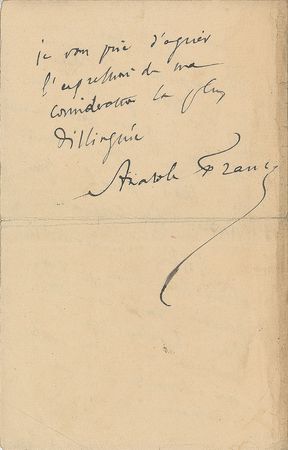 je vous prie d'agréer
l'expression de ma
considération la plus
distinguée
Anatole France